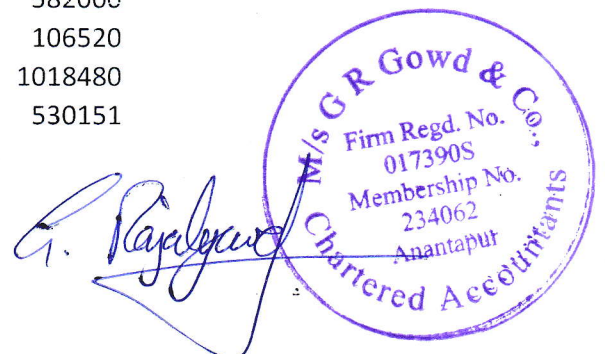 582000
106520
1018480
530151
M/s G R Gowd & Co.,
Firm Regd. No.
017390S
Membership No.
234062
Anantapur
Chartered Accountants
G.